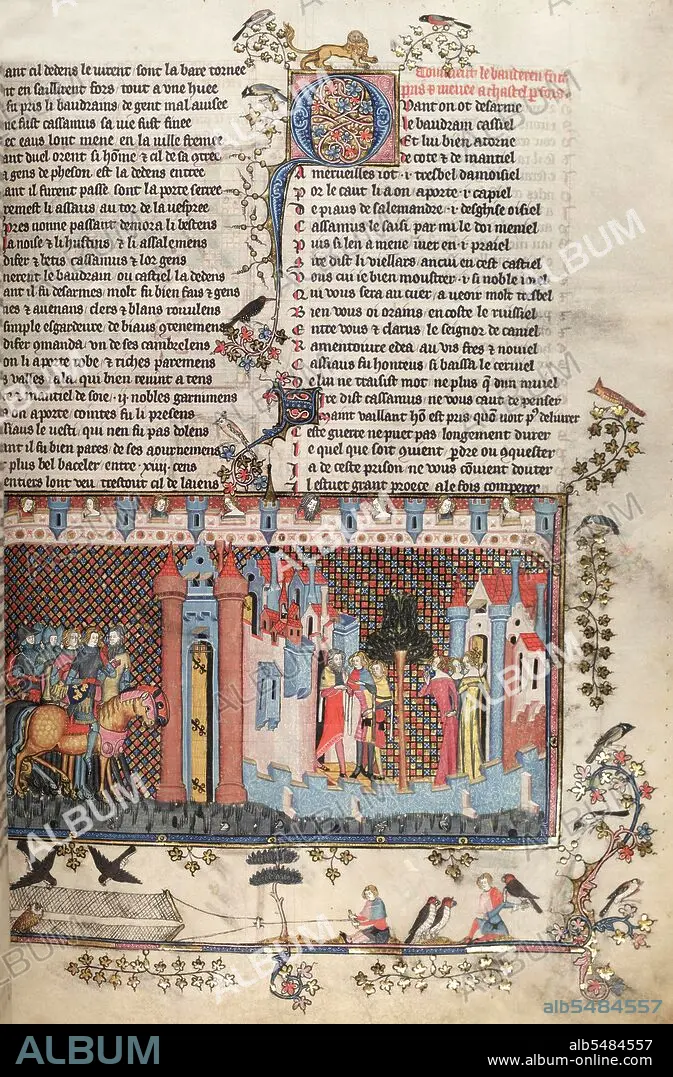 ant cil dedens le virent sont la bare tornee
nt en saillirent fors tout a vne huee
fu pris li baudrains de gent mal auisee
ne fust cassamus sa vie fust finee
ec eaus lont mene en la uille fremee
ant duel orent si home & cil de sa
a gens de pheson est la dedens entree
ant il furent passe sont la porte serree
remest li assaus au tor de la vespree
pres nonne passant demora li bestens
a noise & li hustins & li assalemens
difer & betis cassamus & loz gens
nerent le baudrain ou castiel la dedens
ant il fu desarmes molt fu bien fais & gens
nes & auenans clers & blans
simple esgardeure de biaus
difer manda vn de ses cambrelens
on li aporte robe & riches paremens
s valles ala qui bien reuint a tens
mantiel de soie ij nobles garnimens
on aporte cointes fu li presens
uesti qui nen fu pas dolens
ant il fu bien pares de ses aournemens
plus bel baceler entre xiiij cens
entiers lont veu trestout cil de laiens
Comment le bauderen fu
pris & menee a chastel
Quant on ot desarme
le baudrain cassiel
Et lui bien atorne
de cote & de mantiel
A merueilles iot i tresbel damoisiel
Por le caut li a on aporte i capiel
De piaus de salemandre i desghise oisiel
Cassamus le saisi par mi le doi meniel
Puis si len a mene iuer en i praiel
Sire dist li viellars ancui en cest castiel
Vous cui ie bien moustrer i si noble iuel
Qui vous sera au cuer a veoir molt tresbel
Bien vous oi orains en coste le ruissiel
Entre vous & clarus le seignor de
Ramentoiure edea au vis fres & nouiel
Cassiaus fu honteus si baissa le ceruiel
De lui ne traisist mot ne plus qun muiel
Sire dist cassamus ne vous caut de penser
Maint vaillant hom est pris quon voit por deliurer
Ceste guerre ne puet pas longement durer
Ie quel que soit quient perdre ou conquester
Ia de ceste prison ne vous couient douter
Il estuet grant proece a le fois comperer
ALBUM
alb5484557
ALBUM
alb5484557
www.album-online.com